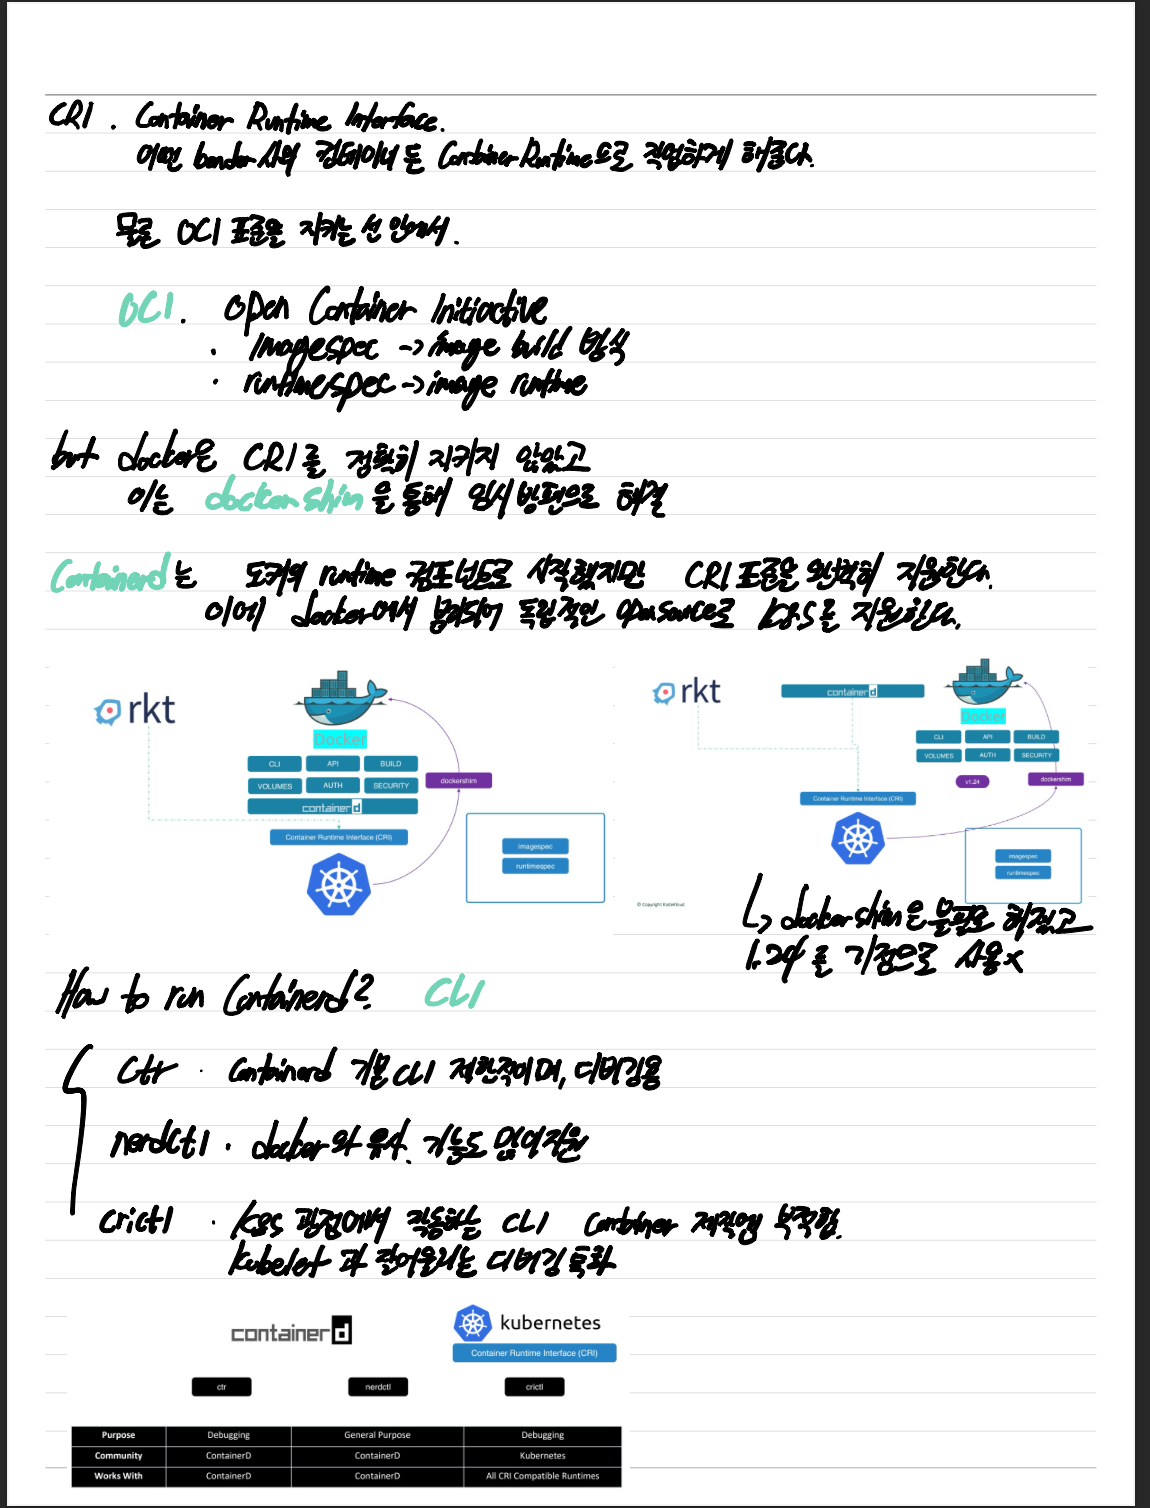 CRI . Container Runtime Interface.
어떤 bendor사의 컨테이너 든 Container Runtime으로 작업하게 해준다.
물론 OCI 표준을 지키는 선 안에서.
OCI. Open Container Initiactive
· Imagespec -> image build 방식
· runtimespec -> image runtime
but docker은 CRI를 정확히 지키지 않았고
이는 dockershim을 통해 임시방편으로 해결
Containerd는 도커의 runtime 컴포넌트로 시작했지만 CRI 표준을 완벽히 지원한다.
이에 docker에서 분리되어 독립적인 opensource로 k8s를 지원한다.
rkt
Docker
CLI API BUILD
VOLUMES AUTH SECURITY
containerd
dockershim
Container Runtime Interface (CRI)
imagespec
runtimespec
rkt
containerd
Docker
CLI API BUILD
VOLUMES AUTH SECURITY
v1.24
dockershim
Container Runtime Interface (CRI)
imagespec
runtimespec
© Copyright KodeKloud
↳ dockershim은 불필요 해졌고
1.24를 기점으로 사용x
How to run Containerd? CLI
ctr · Containerd 기본 CLI 제한적이며, 디버깅용
nerdctl · docker와 유사. 기능도 많이지원
crictl · k8s 관점에서 작동하는 CLI Container 제작엔 부적합.
kubelet과 잘어울리는 디버깅 특화
containerd
kubernetes
Container Runtime Interface (CRI)
ctr nerdctl crictl
Purpose Debugging General Purpose Debugging
Community ContainerD ContainerD Kubernetes
Works With ContainerD ContainerD All CRI Compatible Runtimes